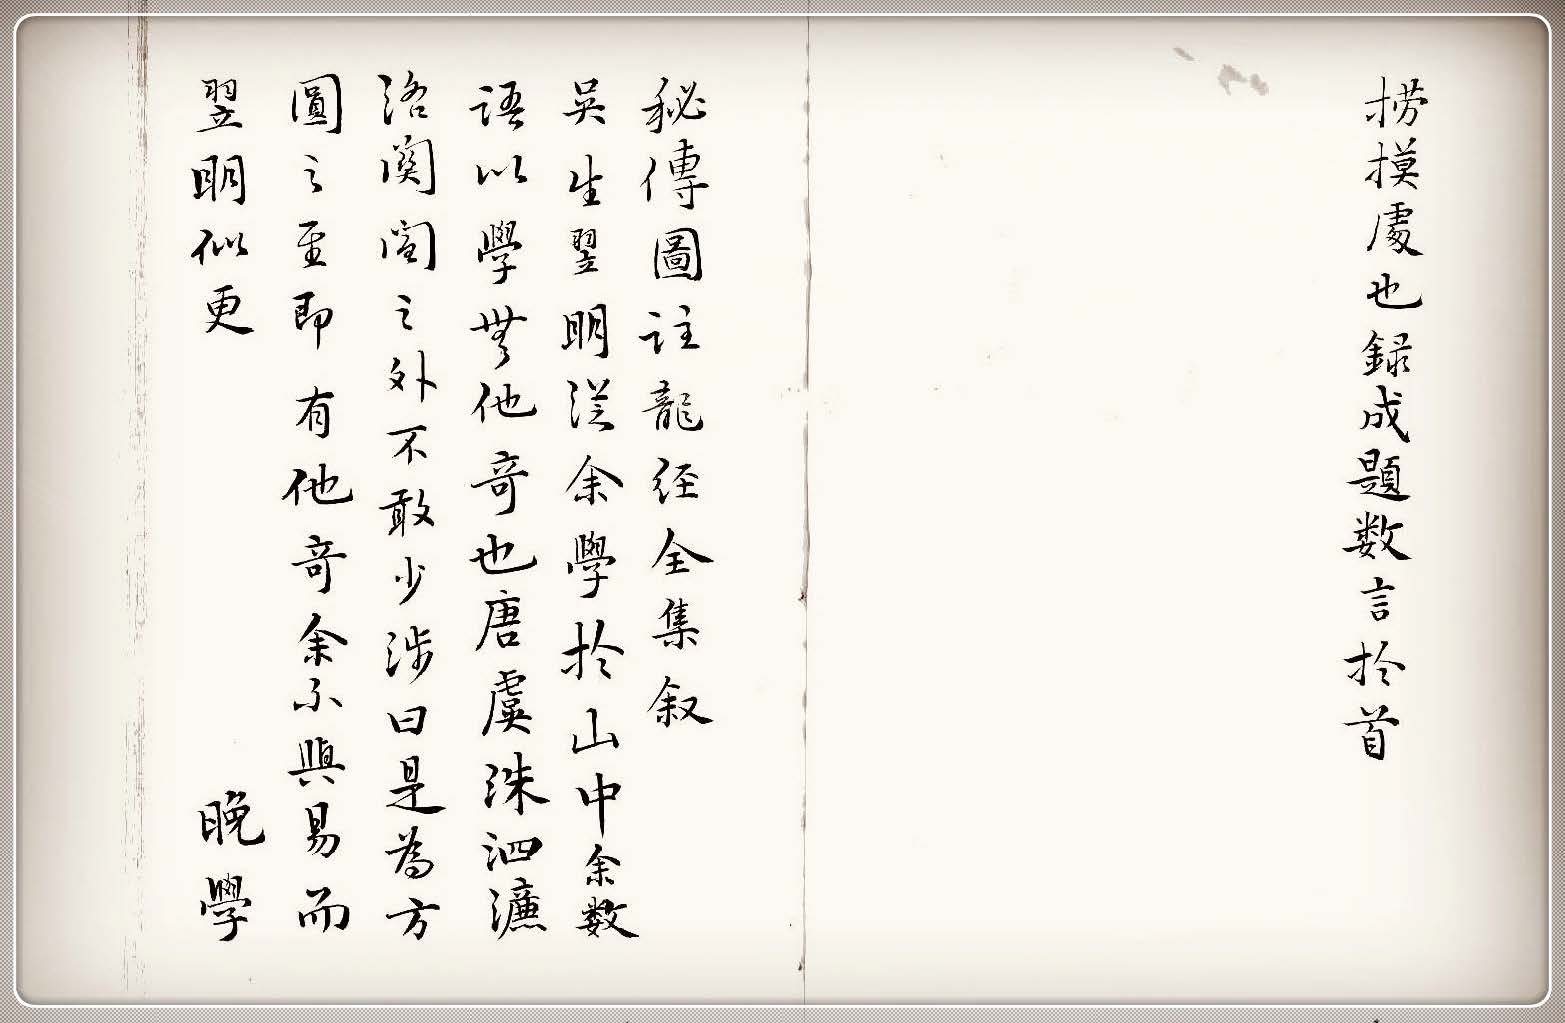 捞摸處也録成題数言扵首
秘傳圖註龍経全集叙
吳生翌明從余學扵山中余数
語以學無他竒也唐虞洙泗濂
洛関閩之外不敢少涉曰是為方
圓之至即有他竒余不與易而
翌明似更晚學